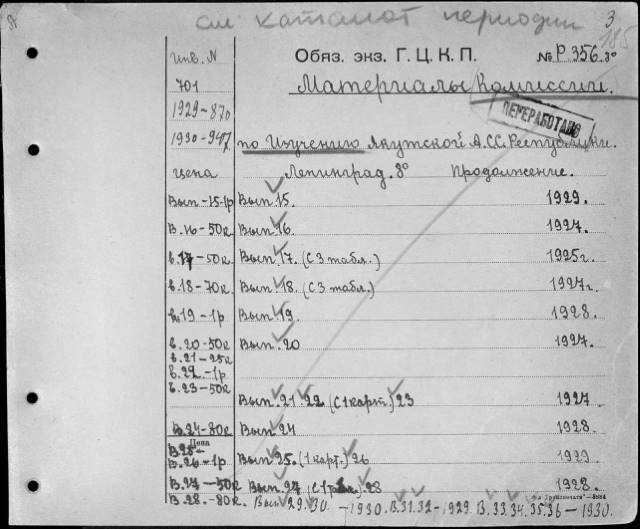 см каталог периодики 3
185
инв. N Обяз. экз. Г. Ц. К. П. № Р. 356. 8°
701 Материалы Комиссии.
1929-870 ПЕРЕРАБОТАНО
1930-947 по Изучению Якутской А.С.С. Республики.
цена Ленинград. 8° Продолжение.
Вып-15-1р Вып. 15. 1929.
В.16-50к. Вып. 16. 1927.
в.17-50к. Вып. 17. (С 3 табл.) 1925г.
в.18-70к. Вып. 18. (С 3 табл.) 1927г.
в.19-1р Вып. 19. 1928.
в.20-50к Вып. 20 1927.
в.21-25к
в.22-1р
в.23-50к
Вып. 21. 22 (С 1 карт.) 23 1927.
В.24-80к. Вып. 24 1928.
Цена
В.25-
В.26-1р Вып. 25. (1 карт.) 26 1929
В.27-50к Вып. 27 28 1928.
В.28-80к. Вып. 29. 30 -1930. В.31.32-1929. В. 33.34. 35.36-1930.